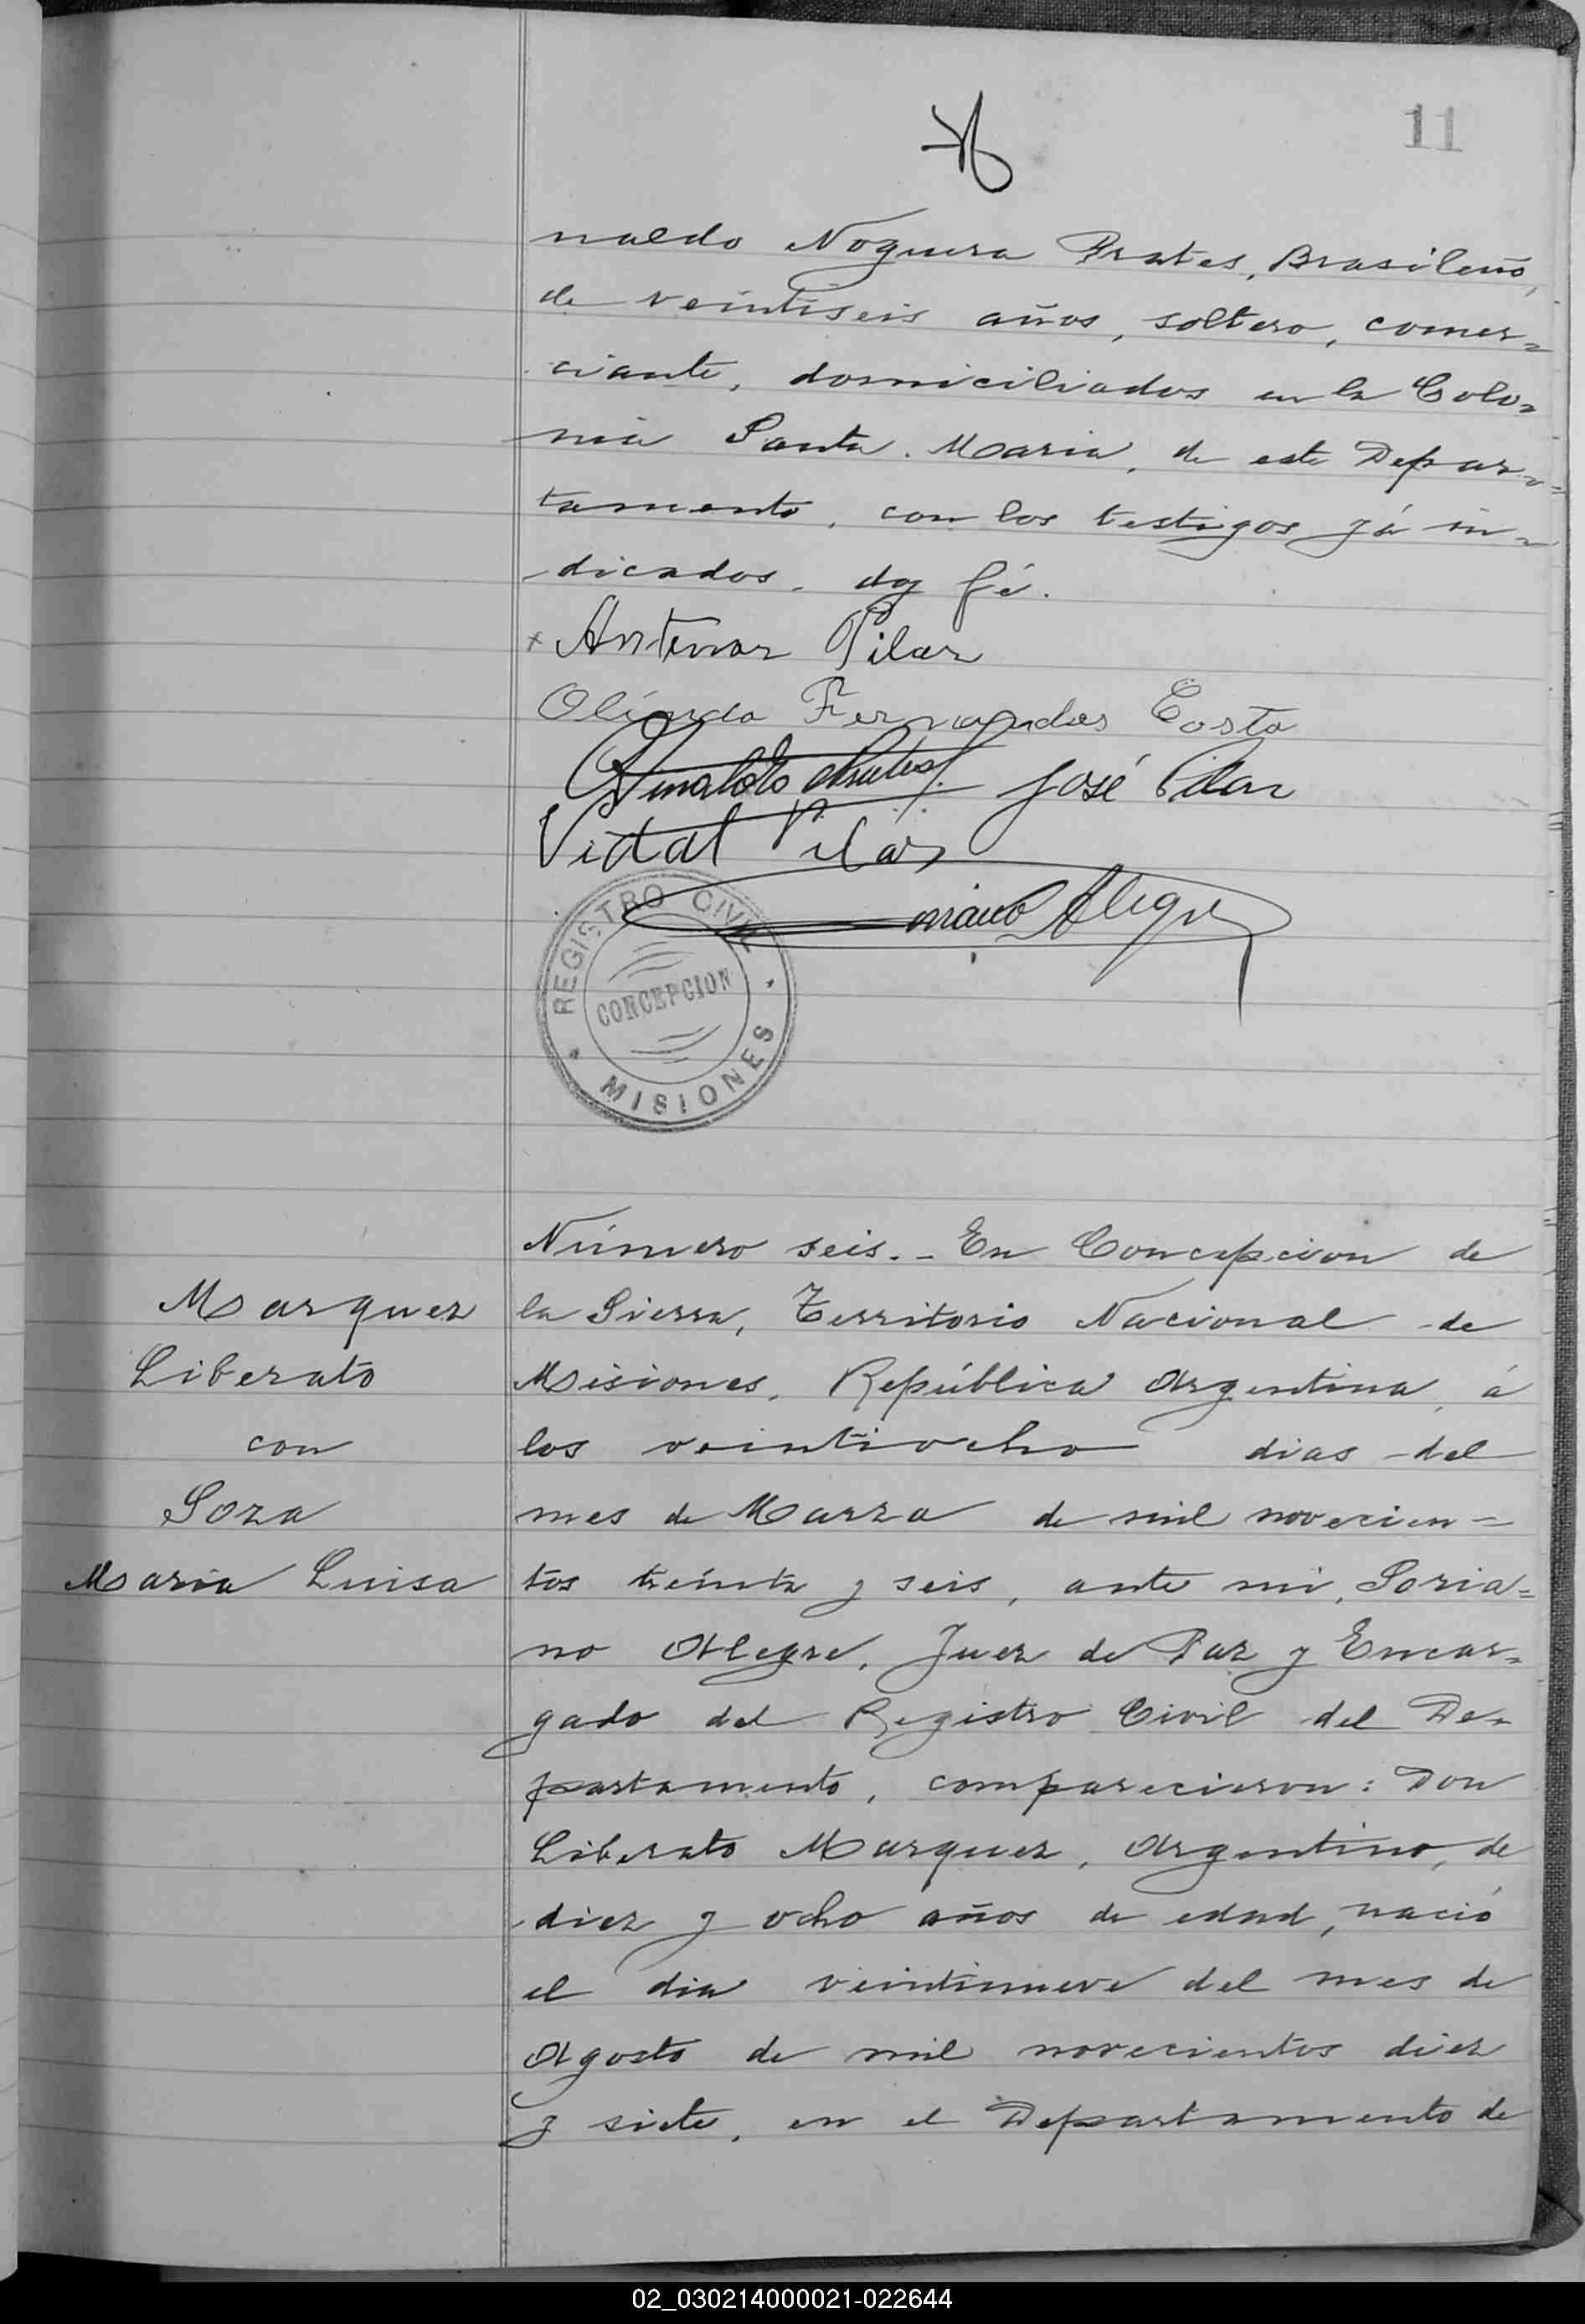 11
naldo Noguera Prates, Brasileño,
de veintiseis años, soltero, comer=
ciante, domiciliados en la Colo=
nia Santa Maria, de este Depar=
tamento, con los testigos yá in=
dicados, doy fé.
x Antenor Pilar
Olinda Fernandes Costa
José Pilar
Vidal Pilar
Alegre
REGISTRO CIVIL
CONCEPCION
MISIONES
Marquez
Liberato
con
Soza
Maria Luisa
Número seis.- En Concepcion de
la Sierra, Territorio Nacional de
Misiones, República Argentina, á
los veintiocho dias del
mes de Marzo de mil novecien=
tos treinta y seis, ante mi, Soria=
no Alegre, Juez de Paz y Encar=
gado del Registro Civil del De=
partamento, comparecieron: Don
Liberato Marquez, Argentino, de
diez y ocho años de edad, nació
el dia veintinueve del mes de
Agosto de mil novecientos diez
y siete, en el Departamento de
02_030214000021-022644